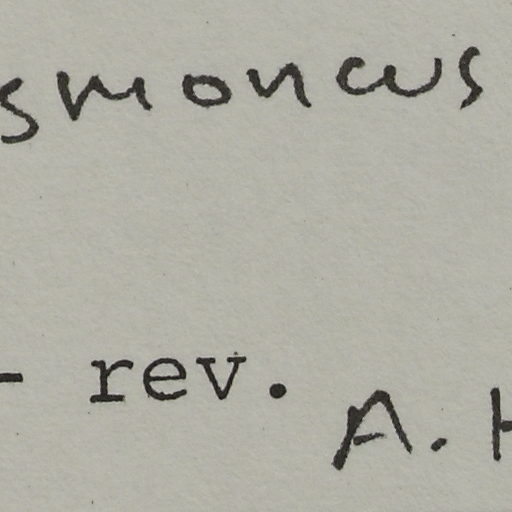 smoncus
- rev.
A. H